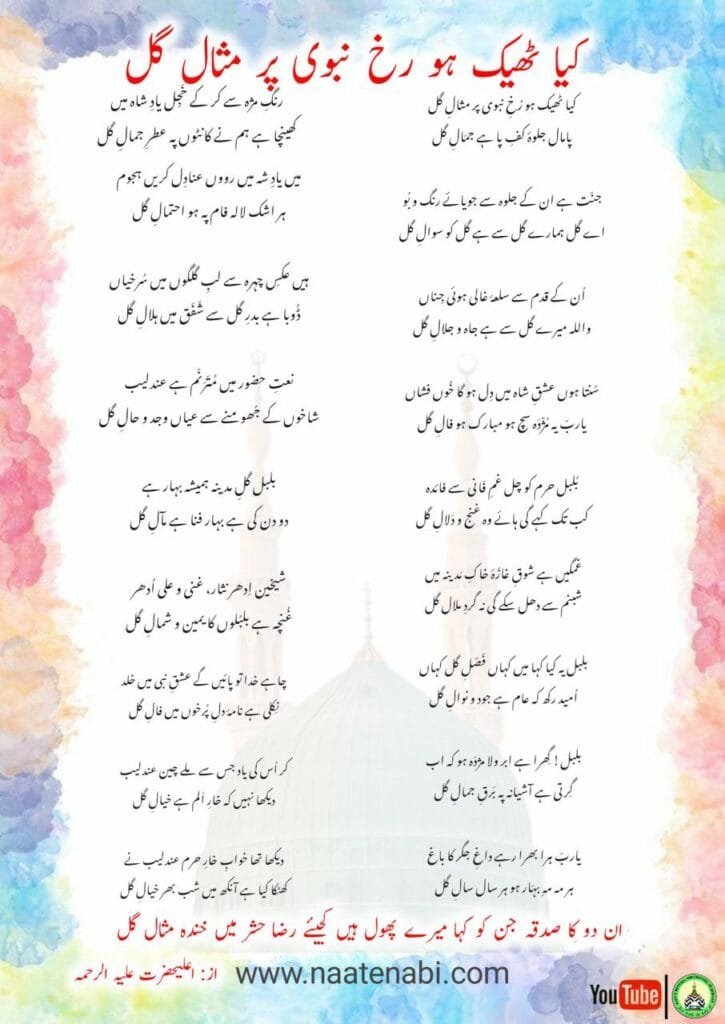 کیا ٹھیک ہو رخ نبوی پر مثال گل
کیا ٹھیک ہو رُخِ نبوی پر مثالِ گل
پامال جلوۂ کفِ پا ہے جمالِ گل
جنّت ہے ان کے جلوہ سے جویائے رنگ و بُو
اے گل ہمارے گل سے ہے گل کو سوالِ گل
اُن کے قدم سے سلعۂ غالی ہوئی جِناں
واللہ میرے گل سے ہے جاہ و جلالِ گل
سُنتا ہوں عشقِ شاہ میں دِل ہو گا خُوں فشاں
یاربّ یہ مُژدَہ سچ ہو مبارک ہو فالِ گل
بُلبل حرم کو چل غمِ فانی سے فائدہ
کب تک کہے گی ہائے وہ غنج و دَلالِ گل
غمگیں ہے شوقِ غازۂ خاکِ مَدینہ میں
شبنم سے دھل سکے گی نہ گردِ ملالِ گل
بلبل یہ کیا کہا میں کہاں فَصْلِ گل کہاں
اُمید رکھ کہ عام ہے جود و نوالِ گل
بلبل! گھِرا ہے ابر ولا مژدَہ ہو کہ اب
گِرتی ہے آشیانہ پہ بَرقِ جمالِ گل
یاربّ ہرا بھرا رہے داغِ جگر کا باغ
ہر مہ مہِ بہار ہو ہر سال سالِ گل
رنگِ مژہ سے کر کے خَجِل یادِ شاہ میں
کھینچا ہے ہم نے کانٹوں پہ عطرِ جمالِ گل
میں یادِ شہ میں رووں عنادِل کریں ہجوم
ہر اشک لالہ فام پہ ہو احتمالِ گل
ہیں عکسِ چہرہ سے لبِ گلگوں میں سُرخیاں
ڈُوبا ہے بدرِ گل سے شَفَق میں ہلالِ گل
نعتِ حضور میں مُترَنَّم ہے عندلیب
شاخوں کے جُھومنے سے عیاں وجد و حالِ گل
بلبل گلِ مدینہ ہمیشہ بہار ہے
دو دن کی ہے بہار فنا ہے مآلِ گل
شیخین اِدھر نثار، غنی و علی اُدھر
غُنچہ ہے بلبُلوں کا یمین و شمالِ گل
چاہے خدا تو پائیں گے عشقِ نبی میں خلد
نکلی ہے نامۂ دلِ پُرخوں میں فالِ گل
کر اُس کی یاد جس سے ملے چین عندلیب
دیکھا نہیں کہ خارِ اَلم ہے خیالِ گل
دیکھا تھا خوابِ خارِ حرم عندلیب نے
کھٹکا کیا ہے آنکھ میں شب بھر خیالِ گل
ان دو کا صدقہ جن کو کہا میرے پھول ہیں کیجئے رضا حشر میں خندہ مثال گل
از: اعلیٰحضرت علیہ الرحمہ www.naatenabi.com
YouTube